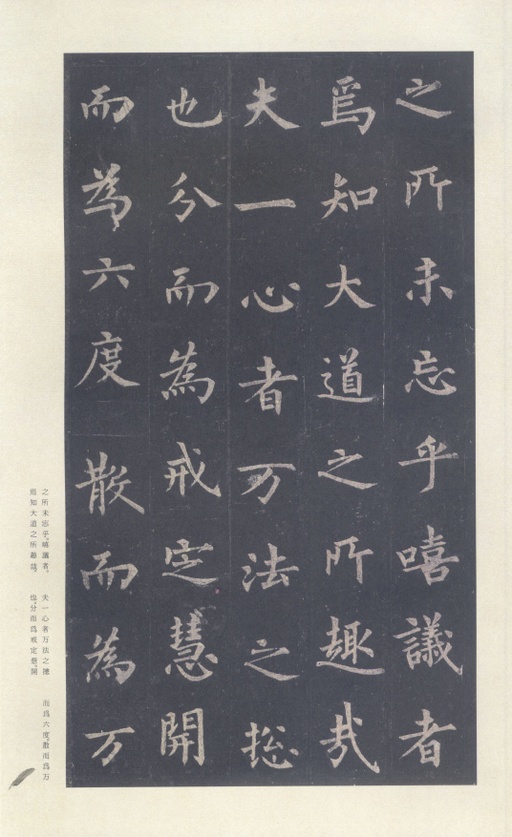 之所未忘乎嘻議者
焉知大道之所趣哉
夫一心者万法之捴
也分而為戒定慧開
而為六度散而為万
之所未忘乎。嘻議者。
焉知大道之所趣哉。
夫一心者万法之捴
也。分而爲戒定慧。開
而爲六度。散而爲万